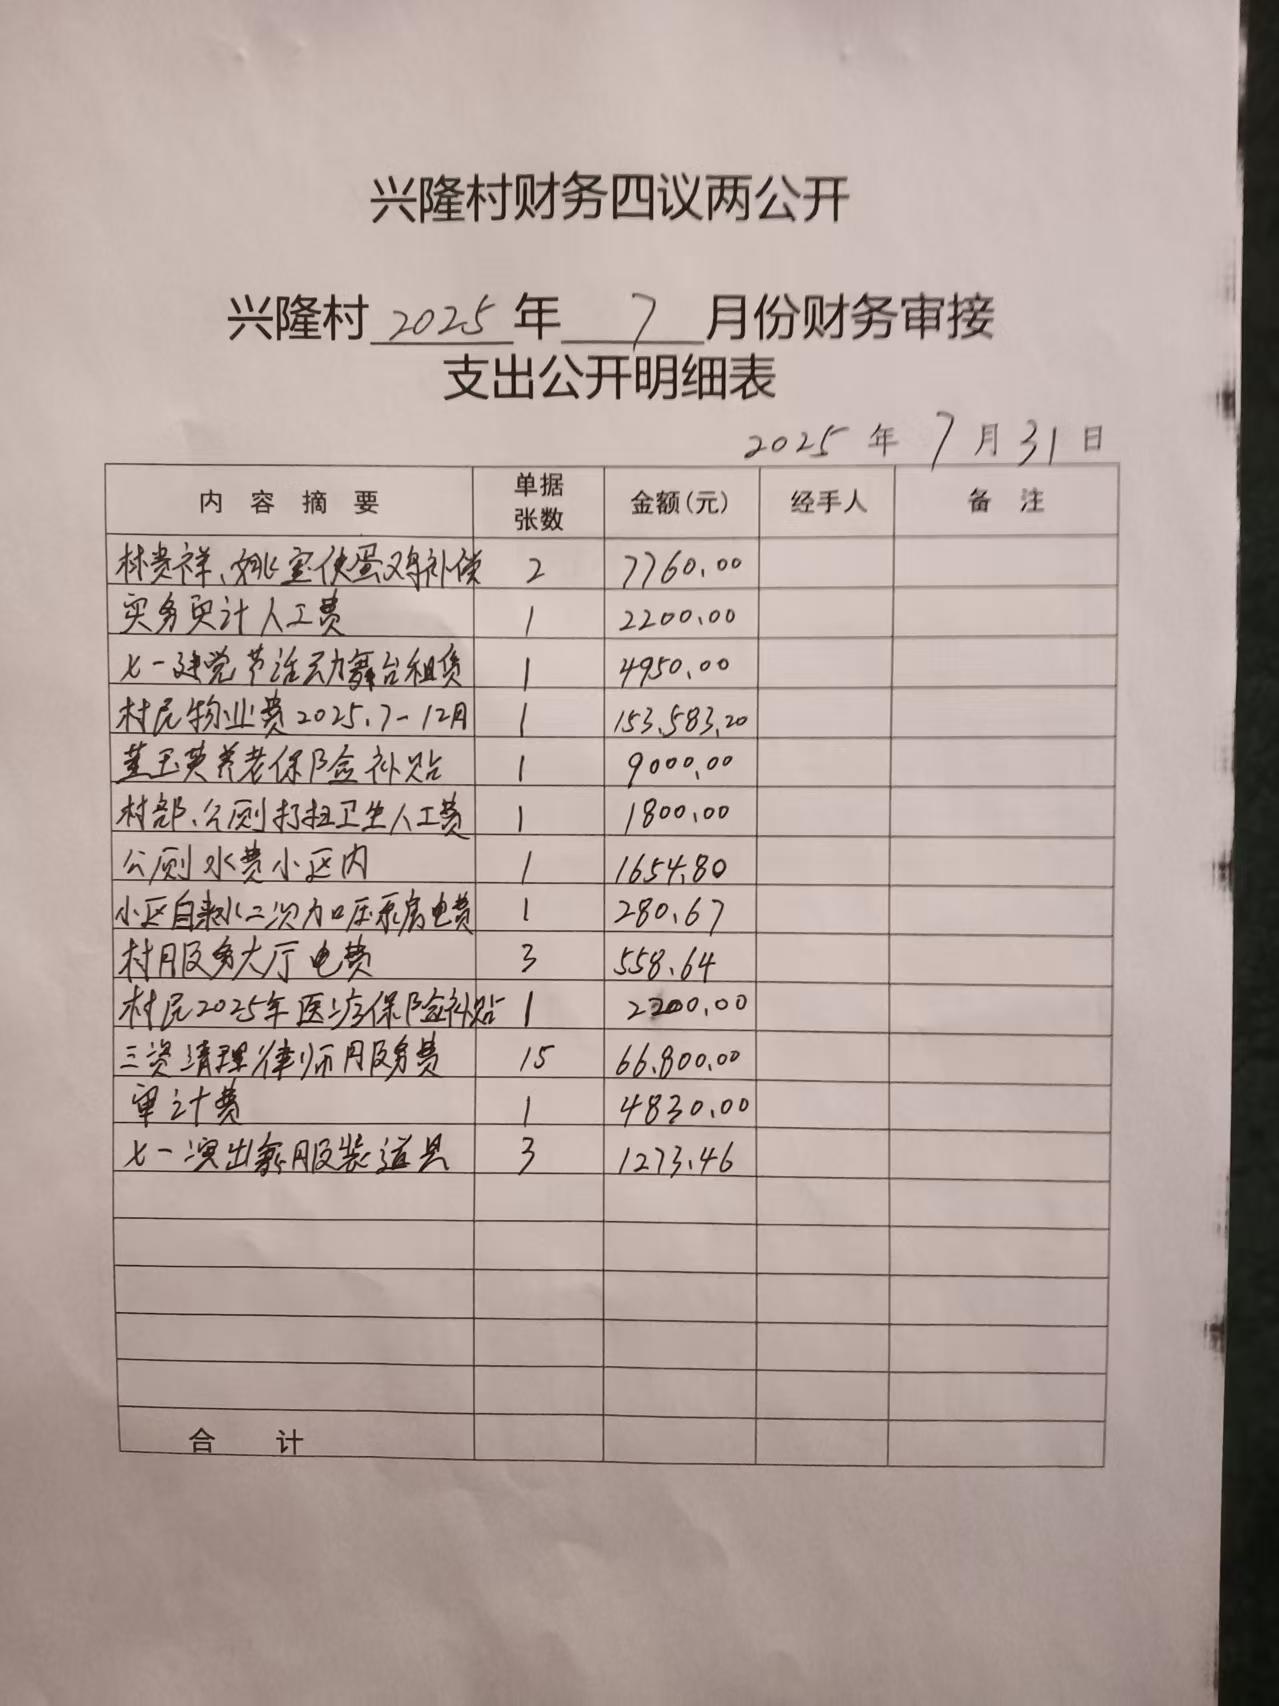 兴隆村财务四议两公开
兴隆村2025年7月份财务审接
支出公开明细表
2025年7月31日
内容摘要 单据张数 金额(元) 经手人 备注
林贵祥、姚宝侠蛋鸡补偿 2 7760.00
实务审计人工费 1 2200.00
七一建党节活动舞台租赁 1 4950.00
村民物业费2025.7-12月 1 153.583.20
董玉英养老保险补贴 1 9000.00
村部、公厕打扫卫生人工费 1 1800.00
公厕水费小区内 1 1654.80
小区自来水二次加压泵房电费 1 280.67
村服务大厅电费 3 558.64
村民2025年医疗保险补贴 1 2200.00
三资清理律师服务费 15 66.800.00
审计费 1 4830.00
七一演出服装道具 3 1273.46
合计